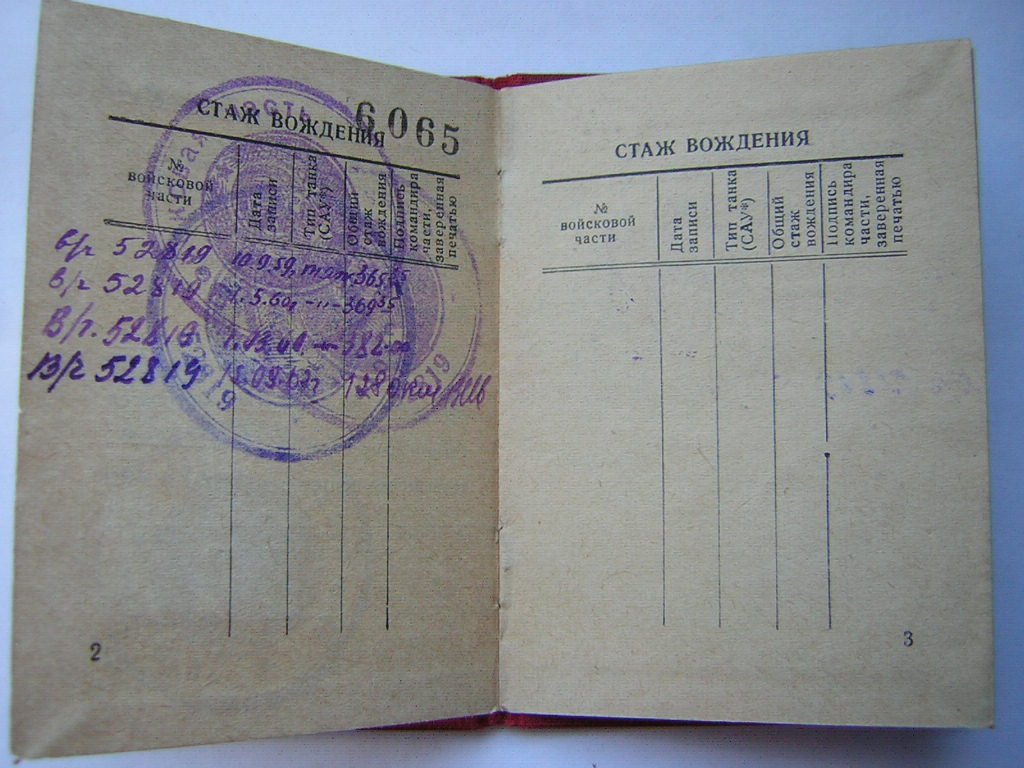 СТАЖ ВОЖДЕНИЯ
6065
№
войсковой
части
Дата
записи
Тип танка
(САУ*)
Общий
стаж
вождения
Подпись
командира
части,
заверенная
печатью
в/ч 52819 10.9.59,
в/ч 52819 5.60г -"- 369
В/ч. 52819
В/ч 52819
2
СТАЖ ВОЖДЕНИЯ
№
войсковой
части
Дата
записи
Тип танка
(САУ*)
Общий
стаж
вождения
Подпись
командира
части,
заверенная
печатью
3